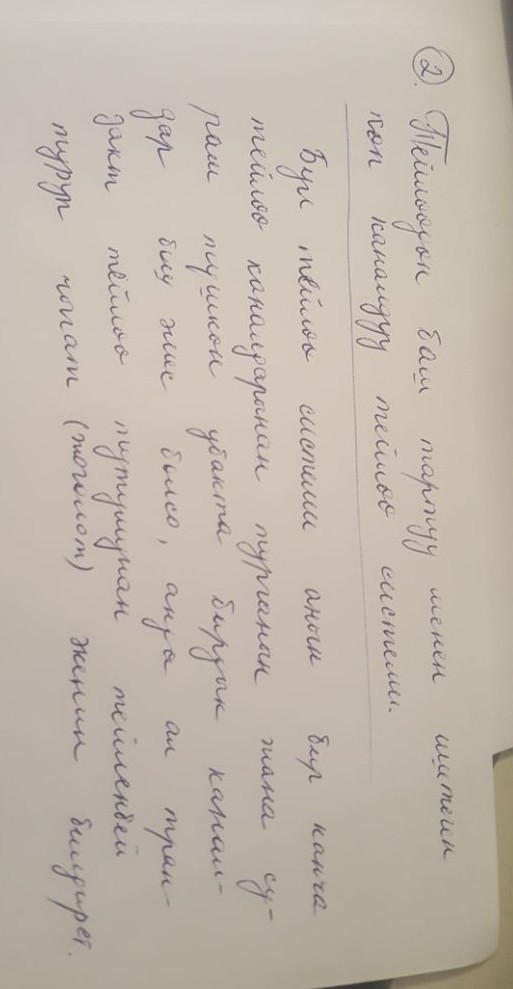 ② Тейлоодон баш тартуу менен иштеген
көп каналдуу тейлоо системи.
Бул тейлоо системи анын бир канча
тейлоо каналдарынан турганын жана су-
рам тушкон убакта бардык канал-
дар бош эмес болсо, анда ал тран-
закт тейлоо тутумунан тейленбей
туруп чыгат (жоголот) экенин билдирет.